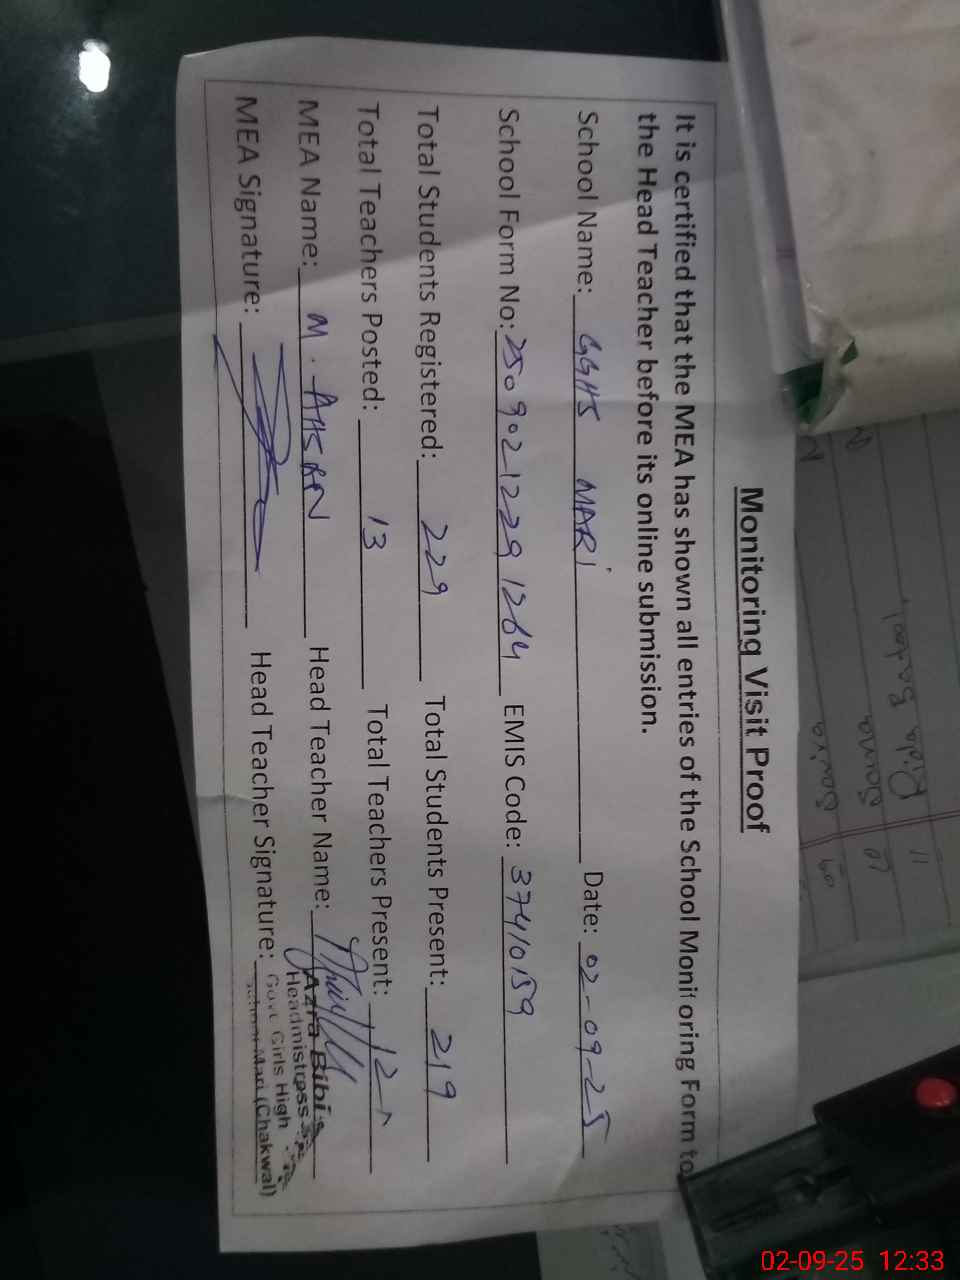 Monitoring Visit Proof
It is certified that the MEA has shown all entries of the School Monitoring Form to
the Head Teacher before its online submission.
School Name: GGHS MARi Date: 02-09-25
School Form No: 25090212291264 EMIS Code: 37410159
Total Students Registered: 229 Total Students Present: 219
Total Teachers Posted: 13 Total Teachers Present: 12
MEA Name: M. AHSAN Head Teacher Name:
MEA Signature: Head Teacher Signature:
Azra Bibi
Headmistress
Govt Girls High
School Mari (Chakwal)
11
10
09
02-09-25 12:33